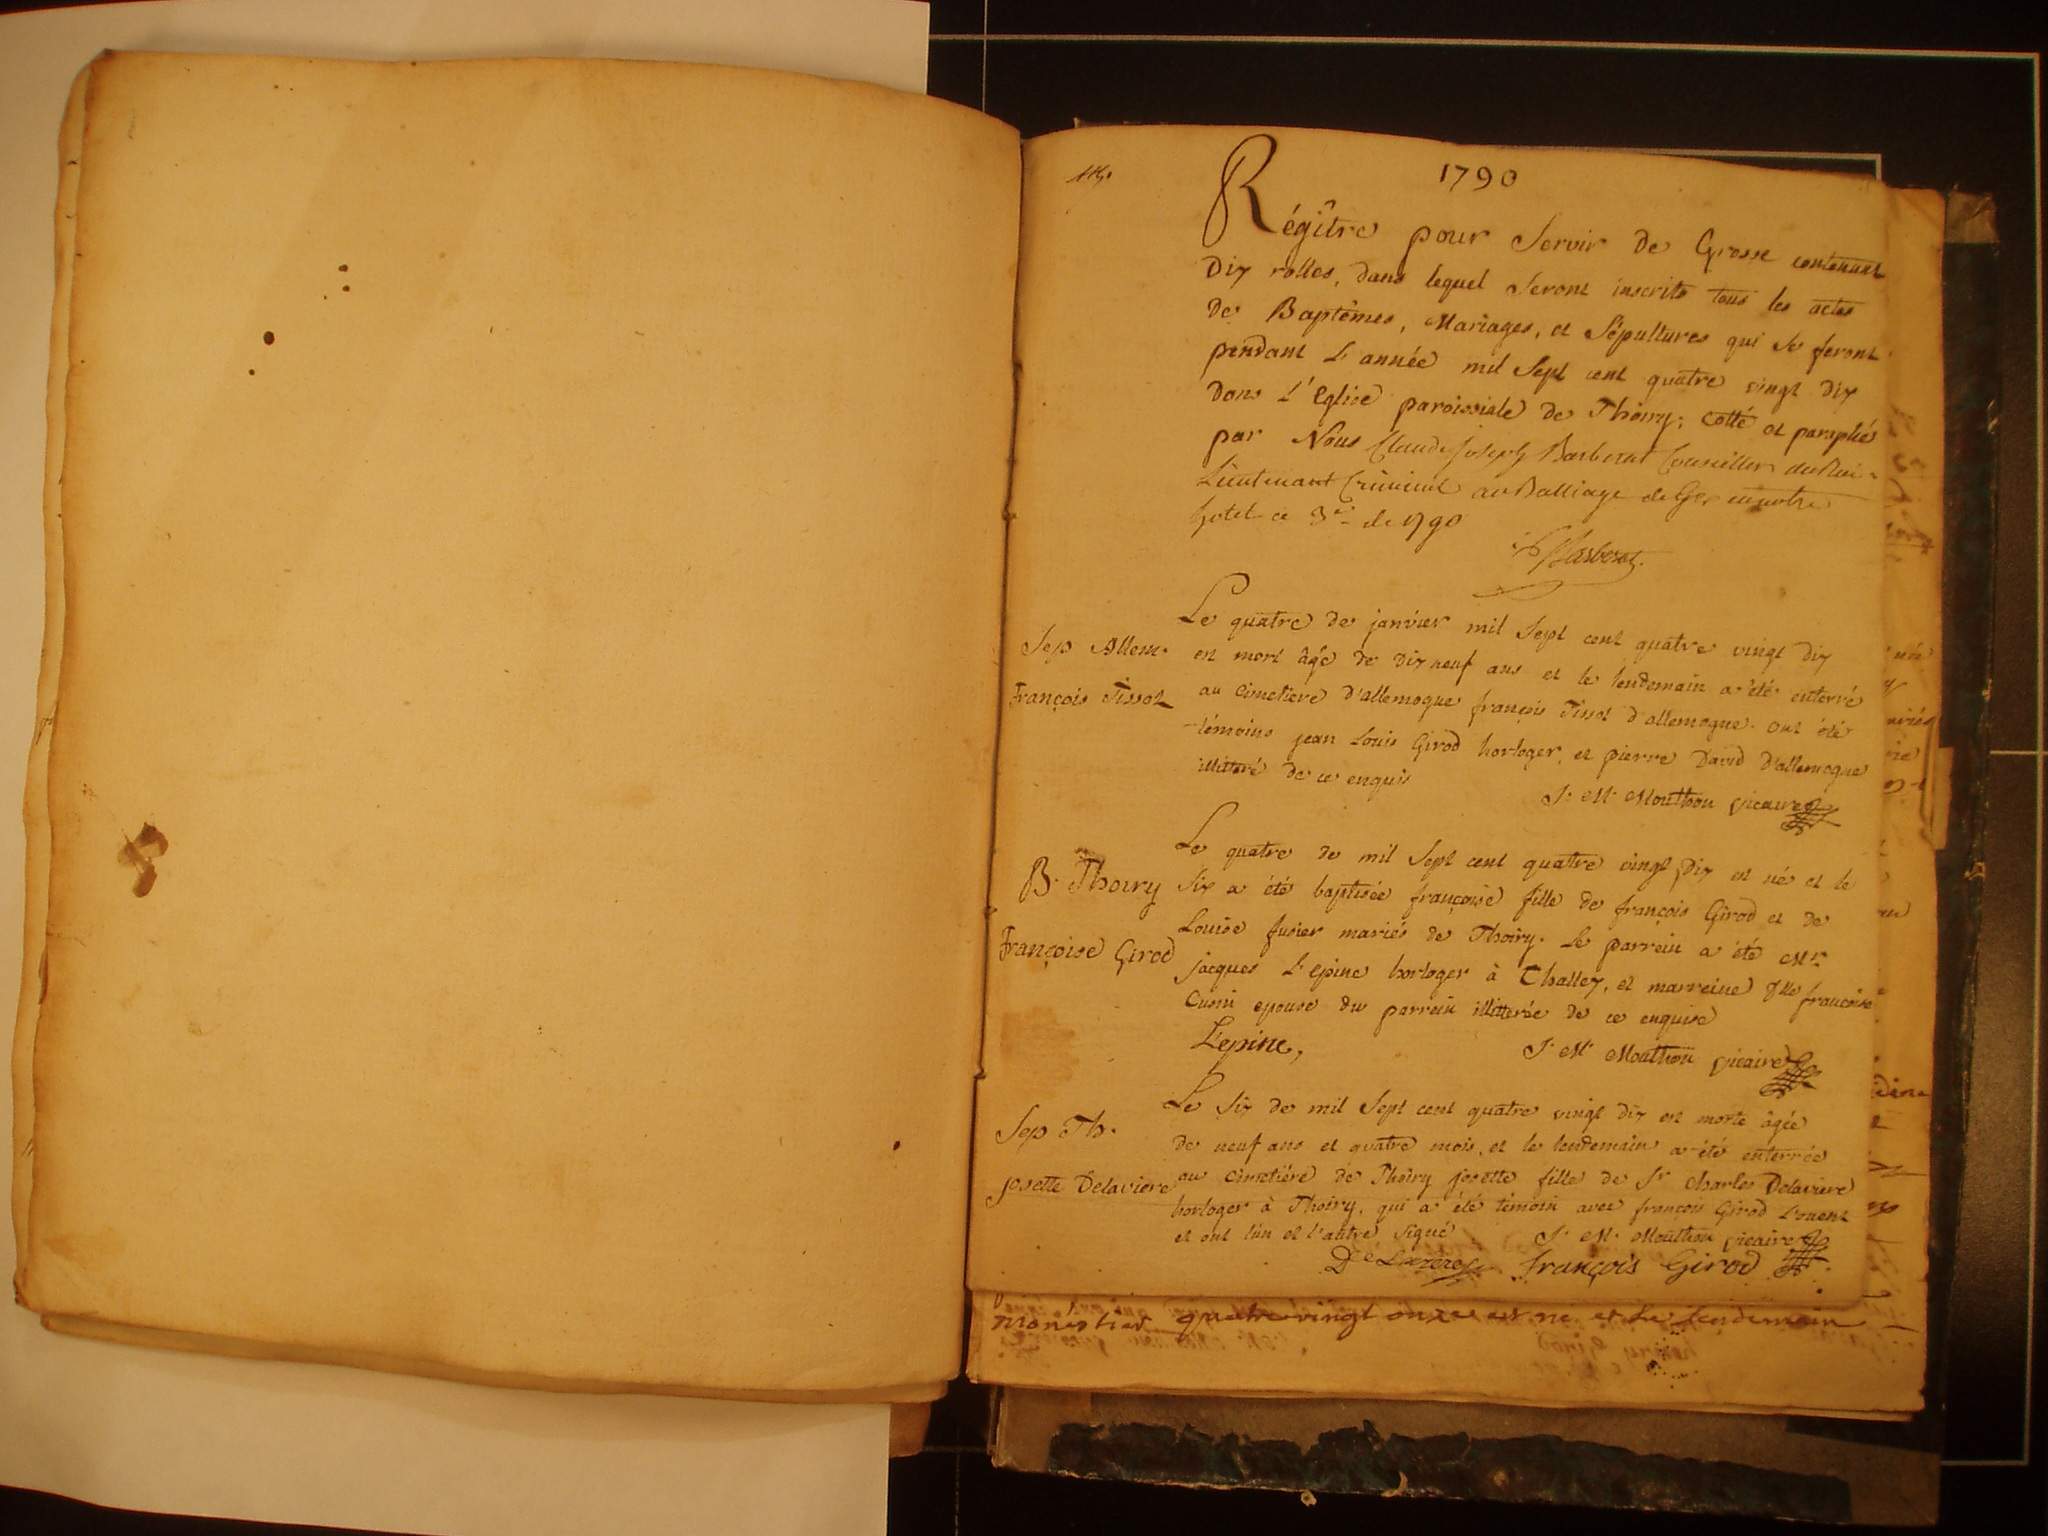 1790
Régître pour Servir de Grosse contenant
Dix rolles, dans lequel Seront inscrits tous les actes
de Baptêmes, Mariages, et Sépultures qui se feront
pendant L'année mil Sept cent quatre vingt Dix
Dans L'Eglise paroissiale de Thoiry; cotté et paraphés
par Nous Claude Joseph Barberat Conseiller du Roi
Lieutenant Criminel au Balliage de Gex en notre
hotel ce 3 de 1790
Barberat
Sep Allem.
François Tissot
Le quatre de janvier mil Sept cent quatre vingt Dix
est mort âgé de Dix neuf ans et le lendemain a été enterré
au cimetiere d'allemogne françois Tissot d'allemogne. ont été
témoins jean Louis Girod horloger, et pierre David d'allemogne
illitteré de ce enquis
J. M. Mouthon vicaire
B. Thoiry
Françoise Girod
Le quatre de mil Sept cent quatre vingt Dix est né et le
Six a été baptisée françoise fille de françois Girod et de
Louise fusier mariés de Thoiry. Le parrein a été Mr
jacques L'epine horloger à Challex, et marreine Dlle francoise
Cusin epouse du parrein illitterée de ce enquise
L'epine,
J. M. Mouthon vicaire
Sep Th.
josette Delaviere
Le Six de mil Sept cent quatre vingt dix est morte âgée
de neuf ans et quatre mois, et le lendemain a été enterrée
au cimetiére de Thoiry josette fille de Sr charles Delaviere
horloger à Thoiry, qui a été témoin avec françois Girod
et ont l'un et l'autre signé
J. M. Mouthon vicaire
françois Girod
quatre vingt onze est né et Le Lendemain